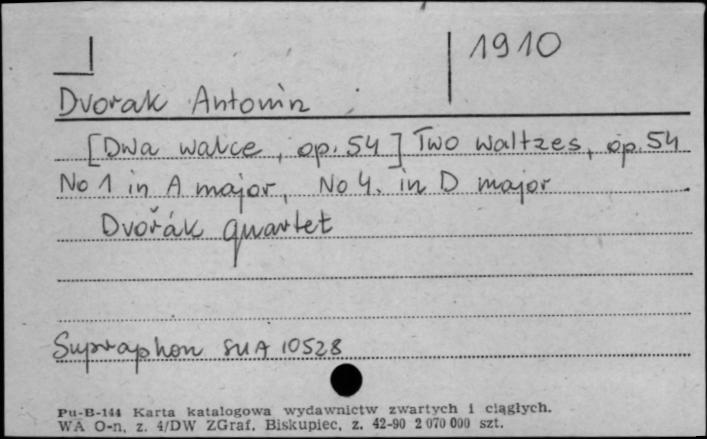 1910
Dvorak Antonin
[Dwa walce, op. 54] Two waltzes, op. 54
No 1 in A major, No 4. in D major
Dvořák quartet
Supraphon SUA 10528
Pu-B-144 Karta katalogowa wydawnictw zwartych i ciągłych.
WA O-n, z. 4/DW ZGraf. Biskupiec, z. 42-90 2 070 000 szt.